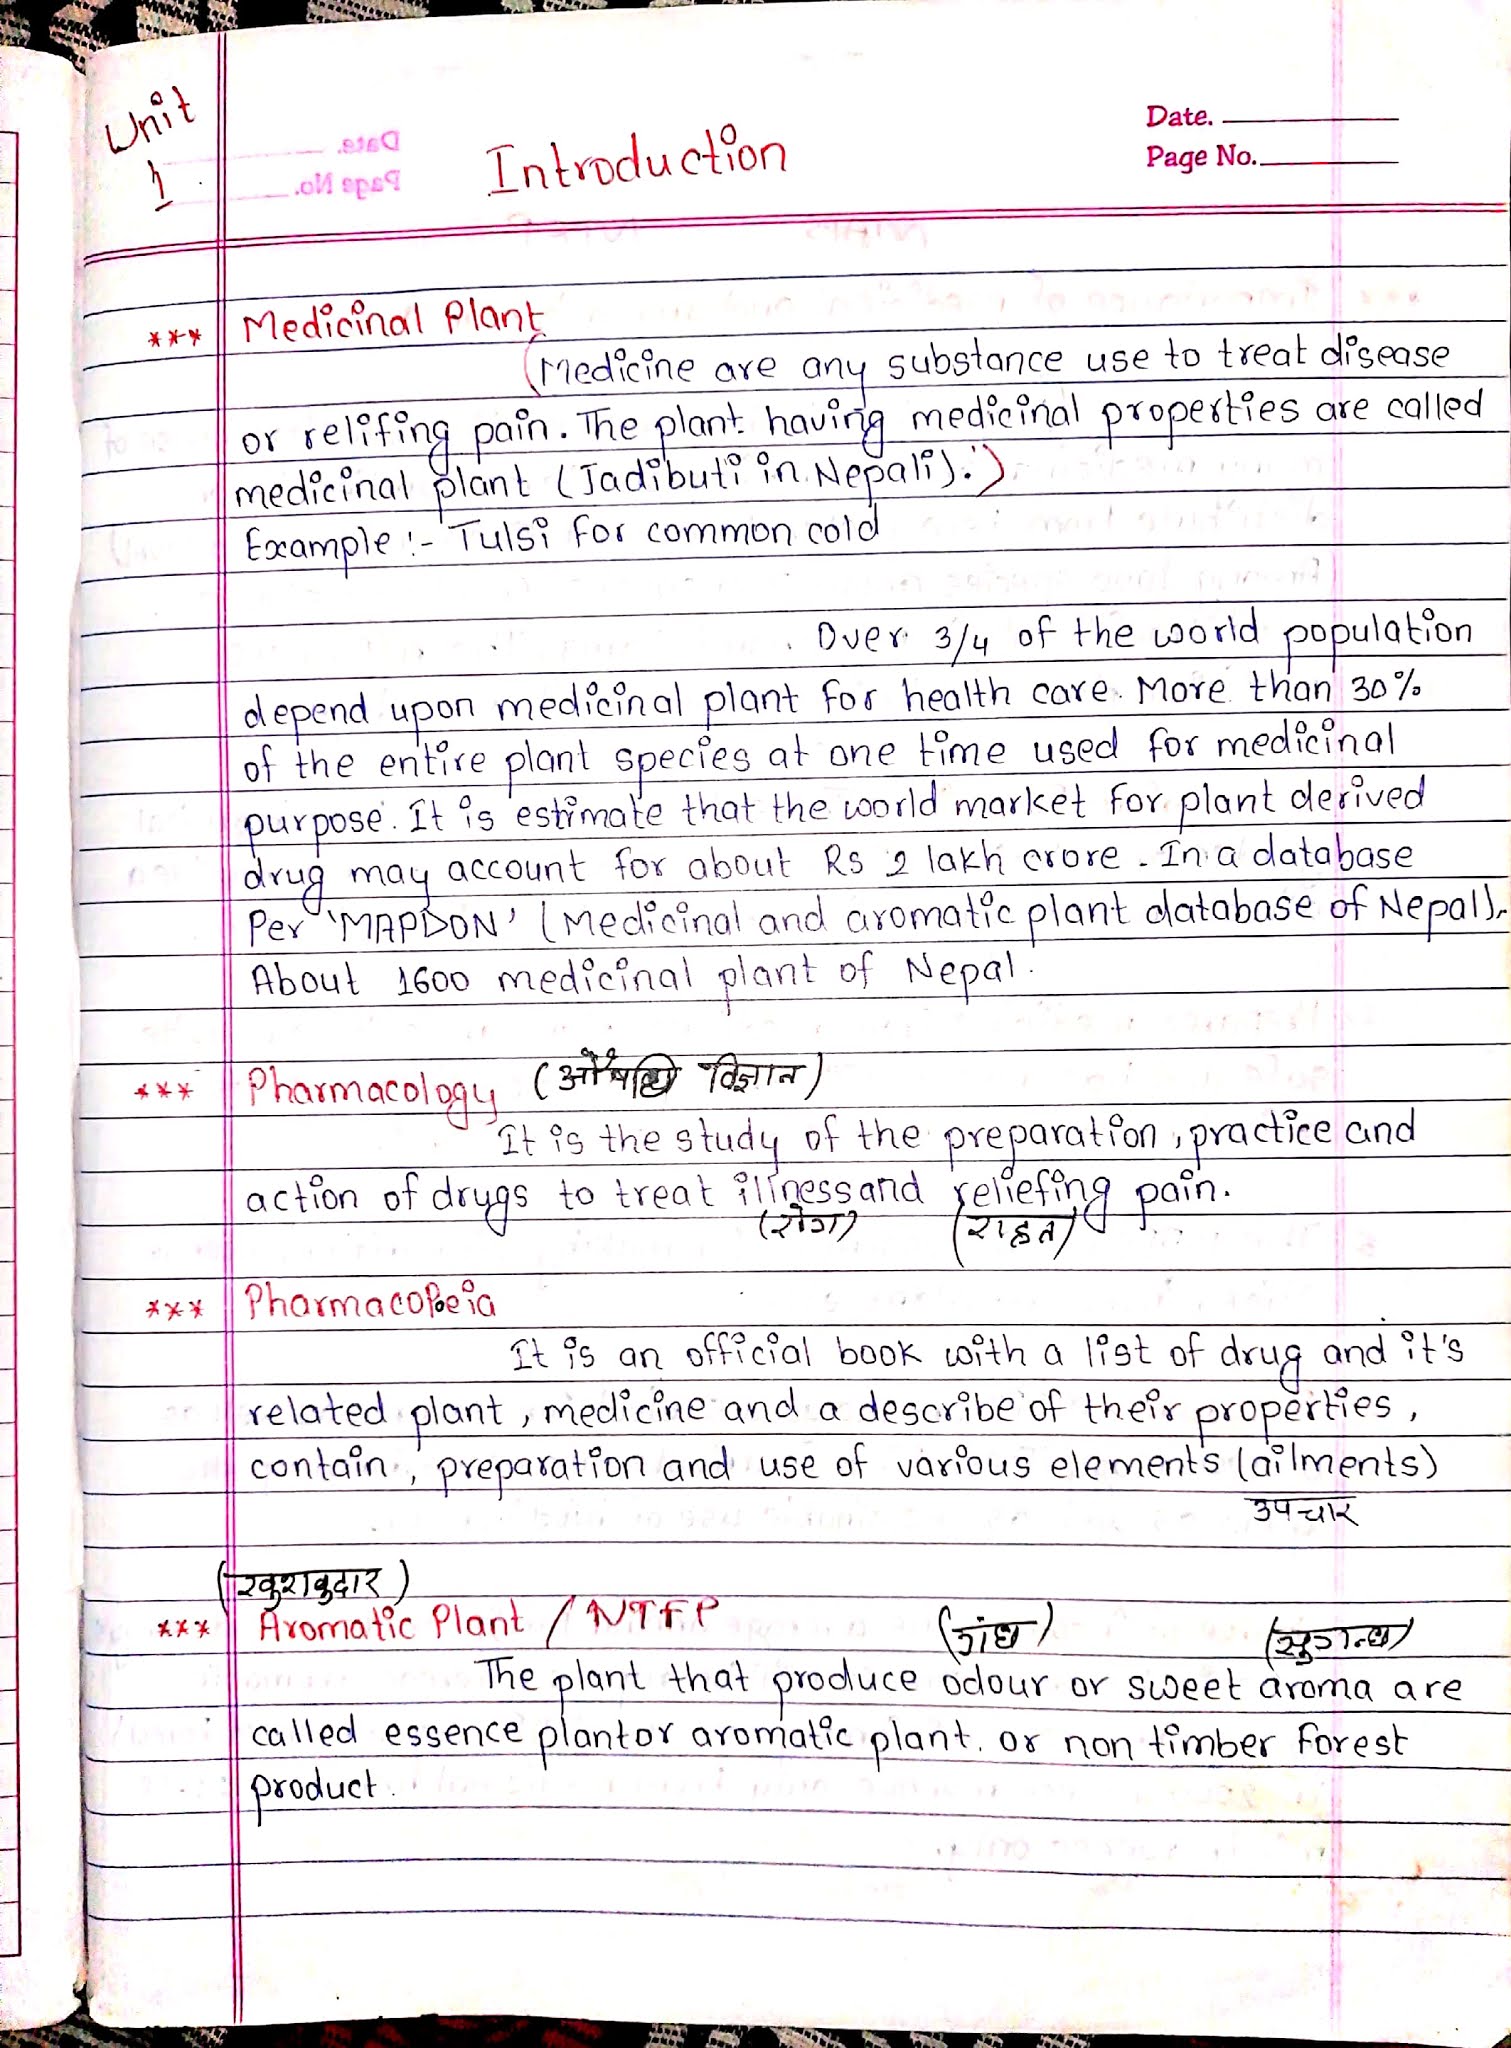 Unit
1
Date.
Page No.
Introduction
*** Medicinal Plant
(Medicine are any substance use to treat disease
or relifing pain. The plant having medicinal properties are called
medicinal plant (Jadibuti in Nepali).)
Example :- Tulsi for common cold
Over 3/4 of the world population
depend upon medicinal plant for health care. More than 30%
of the entire plant species at one time used for medicinal
purpose. It is estimate that the world market for plant derived
drug may account for about Rs 2 lakh crore. In a database
Per 'MAPDON' (Medicinal and aromatic plant database of Nepal).
About 1600 medicinal plant of Nepal.
*** Pharmacology (औषधि विज्ञान)
It is the study of the preparation, practice and
action of drugs to treat illness and reliefing pain.
(रोग) (राहत)
*** Pharmacopoeia
It is an official book with a list of drug and it's
related plant, medicine and a describe of their properties,
contain, preparation and use of various elements (ailments)
उपचार
(खुशबुदार)
*** Aromatic Plant / NTFP (गंध) (सुगन्ध)
The plant that produce odour or sweet aroma are
called essence plant or aromatic plant. or non timber forest
product.